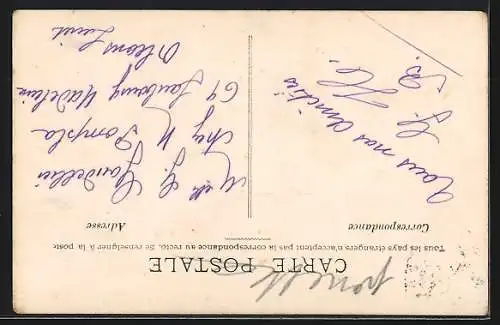 CARTE POSTALE
Tous les pays étrangers n'acceptent pas la correspondance au recto. Se renseigner à la poste
Correspondance
Adresse
Tous nos Amitiés
G.
B.
Melle G.
Chez M
64 Faubourg Madeleine
Orléans Loiret